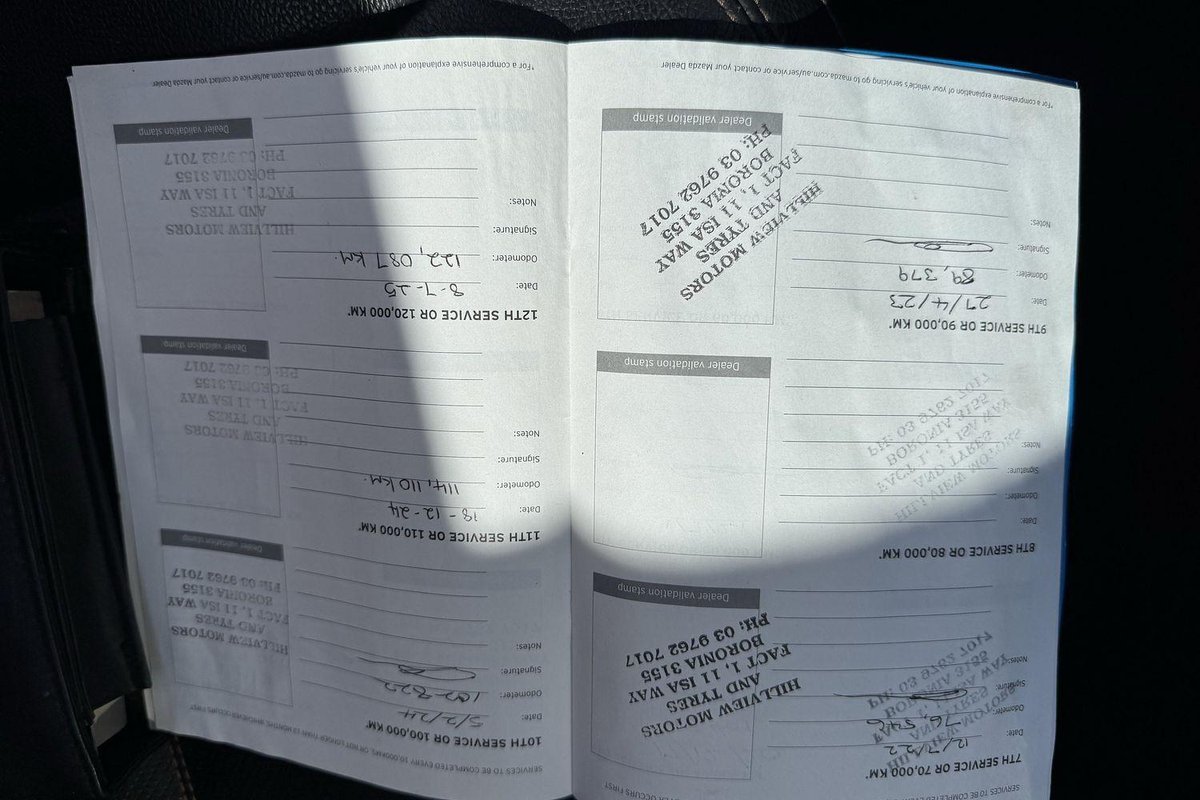 SERVICES TO BE COMPLETED
ER OCCURS FIRST
7TH SERVICE OR 70,000 KM*
Date: 12/7/22
Odometer: 76,546
Signature:
Notes:
HILLVIEW MOTORS
AND TYRES
FACT 1, 11 ISA WAY
BORONIA 3155
PH: 03 9762 7017
Dealer validation stamp
8TH SERVICE OR 80,000 KM*
Date:
Odometer:
Signature:
Notes:
Dealer validation stamp
9TH SERVICE OR 90,000 KM*
Date: 27/4/23
Odometer: 89,379
Signature:
Notes:
HILLVIEW MOTORS
AND TYRES
FACT 1, 11 ISA WAY
BORONIA 3155
PH: 03 9762 7017
Dealer validation stamp
*For a comprehensive explanation of your vehicle's servicing go to mazda.com.au/service or contact your Mazda Dealer
SERVICES TO BE COMPLETED EVERY 10,000KMS, OR NOT LONGER THAN 12 MONTHS, WHICHEVER OCCURS FIRST
10TH SERVICE OR 100,000 KM*
Date: 5/2/24
Odometer:
Signature:
Notes:
HILLVIEW MOTORS
AND TYRES
FACT 1, 11 ISA WAY
BORONIA 3155
PH: 03 9762 7017
Dealer validation stamp
11TH SERVICE OR 110,000 KM*
Date: 18-12-24
Odometer: 114,110 km.
Signature:
Notes:
HILLVIEW MOTORS
AND TYRES
FACT 1, 11 ISA WAY
BORONIA 3155
PH: 03 9762 7017
Dealer validation stamp
12TH SERVICE OR 120,000 KM*
Date: 8-7-25
Odometer: 122,087 km.
Signature:
Notes:
HILLVIEW MOTORS
AND TYRES
FACT 1, 11 ISA WAY
BORONIA 3155
PH: 03 9762 7017
Dealer validation stamp
*For a comprehensive explanation of your vehicle's servicing go to mazda.com.au/service or contact your Mazda Dealer